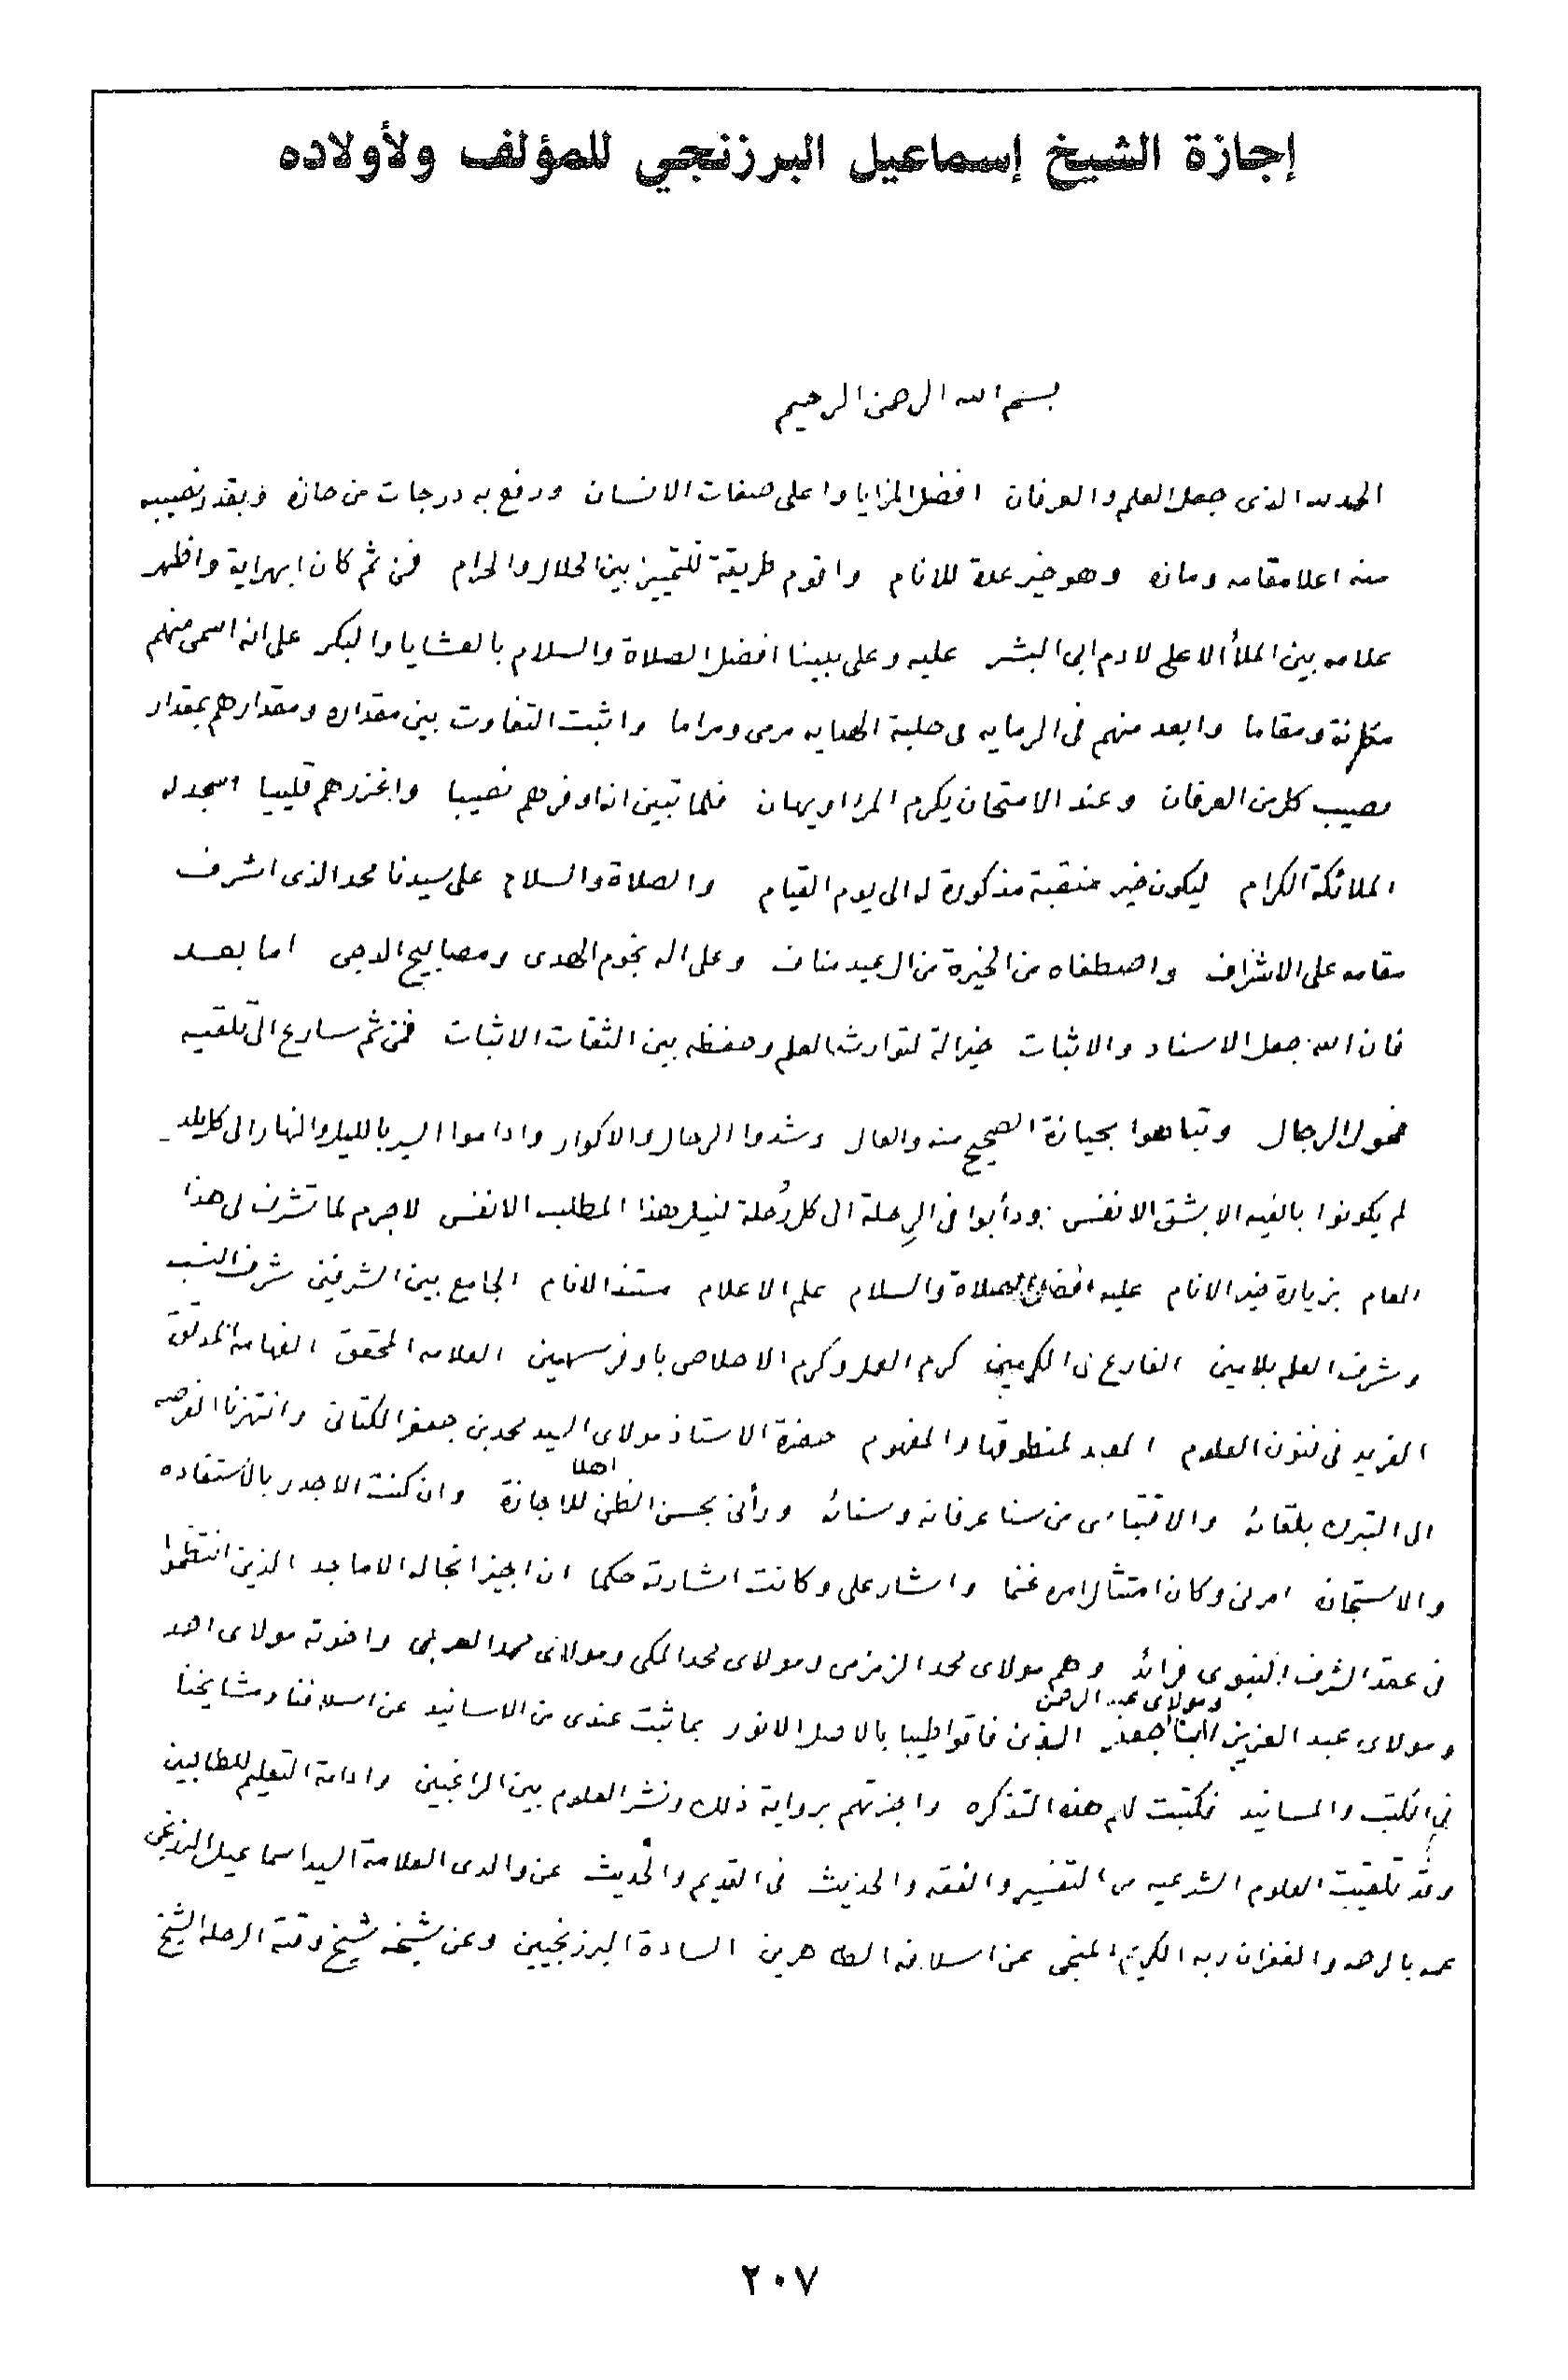 إجازة الشيخ إسماعيل البرزنجي للمؤلف ولأولاده
بسم الله الرحمن الرحيم
الحمد لله الذى جعل العلم والعرفان افضل المزايا واعلى صفات الانسان ورفع به درجات من حازه وبقدر نصيبه
منه اعلا مقامه ومازه وهو خير عدة للانام واقوم طريقة للتمييز بين الحلال والحرام فمن ثم كان ابهراية واظهر
علامه بين الملأ الاعلى لادم ابى البشر عليه وعلى نبينا افضل الصلاة والسلام بالعشايا والبكر على انه اسمى منهم
مكانة ومقاما وابعد منهم فى الرمايه فى حلبة الهدايه مرمى ومراما واثبت التفاوت بين مقداره ومقدارهم بمقدار
نصيب كل من العرفان وعند الامتحان يكرم المرء او يهان فلما تبين انه اوفرهم نصيبا واغزرهم قليبا اسجد له
الملائكة الكرام ليكون خير منقبة مذكورة له الى يوم القيام والصلاة والسلام على سيدنا محمد الذى اشرف
مقامه على الاشراف واصطفاه من الخيرة من ال عبد مناف وعلى اله نجوم الهدى ومصابيح الدجى اما بعد
فان الله جعل الاسناد والاثبات خير الة لتوارث العلم وحفظه بين الثقات الاثبات فمن ثم سارع الى تلقيه
فحول الرجال وتباهوا بحيازة الصحيح منه والعال وشدوا الرحال والاكوار واداموا السير بالليل والنهار الى كل بلد
لم يكونوا بالغيه الا بشق الانفس ودأبوا فى الرِحلة الى كل رُحلة لنيل هذا المطلب الانفس لاجرم لما تشرف فى هذا
العام بزيارة خير الانام عليه افضل الصلاة والسلام علم الاعلام مستند الانام الجامع بين الشرفين شرف النسب
وشرف العلم بلامين الفارع فى الكرمين كرم العمل وكرم الاخلاص باوفر سهمين العلامه المحقق الفهامة المدقق
الفريد فى فنون العلوم المعبد لمنطوقها والمفهوم حضرة الاستاذ مولاى السيد محمد بن جعفر الكتانى وانتهزنا الفرصه
الى التبرك بلقائه والاقتباس من سنا عرفانه وسنائه ورأنى بحسن الظن اهلا للاجازة وان كنت الاجدر بالاستفاده
والاستجازه امرنى وكان امتثال امره غنما واشار على وكانت اشارته حكما ان اجيز انجاله الاماجد الذين انتظموا
فى عقد الشرف النبوى فرائد وهم مولاى محمد الزمزمى ومولاى محمد المكى ومولاى محمد العربى واخوته مولاى احمد
ومولاى عبد الرحمن
ومولاى عبد العزيز ابنا جعفر الذين فاقوا طيبا بالاصل الانور بما ثبت عندى من الاسانيد عن اسلافنا ومشايخنا
فى الكتب والمسانيد فكتبت لهم هذه التذكره واجزتهم برواية ذلك ونشر العلوم بين الراغبين وادامة التعليم للطالبين
وقد تلقيت العلوم الشرعيه من التفسير والفقه والحديث فى القديم والحديث عن والدى العلامة السيد اسماعيل البرزنجى
عمه بالرحمه والغفران ربه الكريم المنجى عن اسلافه الطاهرين السادة البرزنجيين وعن شيخه شيخ وقته الرحله الشيخ
٢٠٧